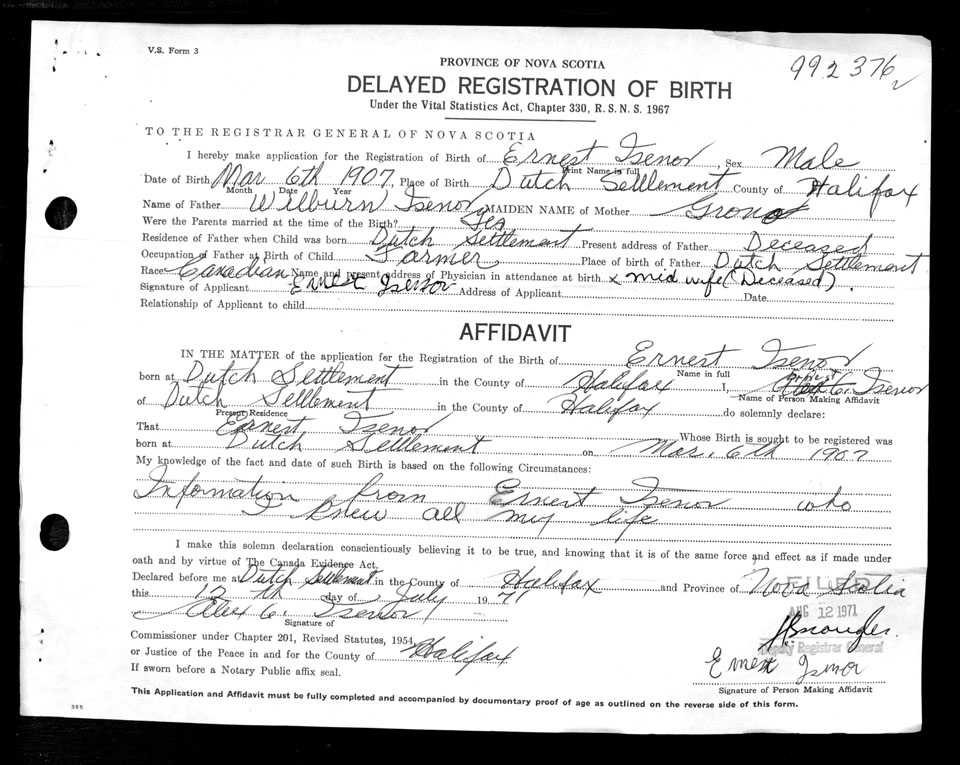 V.S. Form 3
992376
PROVINCE OF NOVA SCOTIA
DELAYED REGISTRATION OF BIRTH
Under the Vital Statistics Act, Chapter 330, R.S.N.S. 1967
TO THE REGISTRAR GENERAL OF NOVA SCOTIA
I hereby make application for the Registration of Birth of Ernest Isenor, Sex Male
Print Name in full
Date of Birth Mar 6th 1907, Place of Birth Dutch Settlement County of Halifax
Month Date Year
Name of Father Wilburn Isenor MAIDEN NAME of Mother Grono
Were the Parents married at the time of the Birth? Yes
Residence of Father when Child was born Dutch Settlement Present address of Father Deceased
Occupation of Father at Birth of Child Farmer Place of birth of Father Dutch Settlement
Race Canadian Name and present address of Physician in attendance at birth x mid wife (Deceased).
Signature of Applicant Ernest Isenor Address of Applicant Date
Relationship of Applicant to child
AFFIDAVIT
IN THE MATTER of the application for the Registration of the Birth of Ernest Isenor
Name in full
born at Dutch Settlement in the County of Halifax I, Ernest Isenor
Name of Person Making Affidavit
of Dutch Settlement in the County of Halifax do solemnly declare:
Present Residence
That Ernest Isenor Whose Birth is sought to be registered was
born at Dutch Settlement on Mar. 6th 1907
My knowledge of the fact and date of such Birth is based on the following Circumstances:
Information from Ernest Isenor who
I knew all my life
I make this solemn declaration conscientiously believing it to be true, and knowing that it is of the same force and effect as if made under
oath and by virtue of The Canada Evidence Act.
Declared before me at Dutch Settlement in the County of Halifax and Province of Nova Scotia
FILED
this 12th day of July 1971
AUG 12 1971
Alex C. Isenor
Signature of
Deputy Registrar General
Commissioner under Chapter 201, Revised Statutes, 1954,
or Justice of the Peace in and for the County of Halifax
Ernest Isenor
If sworn before a Notary Public affix seal.
Signature of Person Making Affidavit
This Application and Affidavit must be fully completed and accompanied by documentary proof of age as outlined on the reverse side of this form.